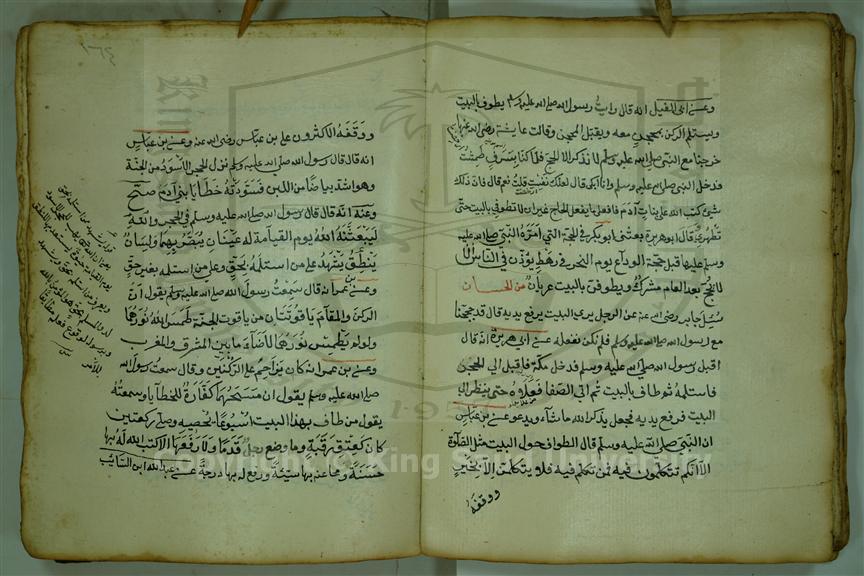 وعن ابى الطفيل انه قال رايت رسول الله صلى الله عليه وسلم يطوف بالبيت
ويستلم الركن بمحجن معه ويقبل المحجن وقالت عايشة رضى الله عنها
خرجنا مع النبى صلى الله عليه وسلم لا نذكر الا الحج فلما كنا بسرف طمثت
فدخل النبى صلى الله عليه وسلم وانا ابكى قال لعلك نفست قلت نعم قال فان ذلك
شئ كتب الله على بنات آدم فافعلى ما يفعل الحاج غير ان لا تطوفى بالبيت حتى
تطهرى وقال ابو هريرة بعثنى ابو بكر فى الحجة التى امره النبى صلى الله عليه
وسلم عليها قبل حجة الوداع يوم النحر فى رهط يؤذن فى الناس الا
لا يحج بعد العام مشرك ولا يطوفن بالبيت عريان من الحسان
سئل جابر رضى الله عنه عن الرجل يرى البيت يرفع يديه قال قد حججنا
مع رسول الله صلى الله عليه وسلم فلم نكن نفعله عن ابى هريرة انه قال
اقبل رسول الله صلى الله عليه وسلم فدخل مكة فاقبل الى الحجر
فاستلمه ثم طاف بالبيت ثم اتى الصفا فعلاه حتى ينظر الى
البيت فرفع يديه فجعل يذكر الله ما شاء ويدعو عن بن عباس
ان النبى صلى الله عليه وسلم قال الطواف حول البيت مثل الصلوة
الا انكم تتكلمون فيه فمن تكلم فيه فلا يتكلمن الا بخير
ووقفه
١٦٤
ووقفه الاكثرون على بن عباس رضى الله عنه وعن بن عباس
انه قال قال رسول الله صلى الله عليه وسلم نزل الحجر الاسود من الجنة
وهو اشد بياضا من اللبن فسودته خطايا بنى آدم صح
وعنه انه قال قال رسول الله صلى الله عليه وسلم فى الحجر والله
ليبعثنه الله يوم القيامة له عينان يبصر بهما ولسان
ينطق يشهد على من استلمه بحق وعلى من استلمه بغير حق
وعن بن عمر انه قال سمعت رسول الله صلى الله عليه وسلم يقول ان
الركن والمقام ياقوتتان من ياقوت الجنة طمس الله نورهما
ولو لم يطمس نورهما لاضاء ما بين المشرق والمغرب
وعن بن عمر انه كان يزاحم على الركنين وقال سمعت رسول الله
صلى الله عليه وسلم يقول ان مسحهما كفارة للخطايا وسمعته
يقول من طاف بهذا البيت اسبوعا يحصيه وصلى ركعتين
كان كعتق رقبة وما وضع رجل قدما ولا رفعها الا كتب الله له بها
حسنة ومحا عنه بها سيئة ورفع له بها درجة عن عبد الله ابن السائب
Copyright © King Saud University
1957